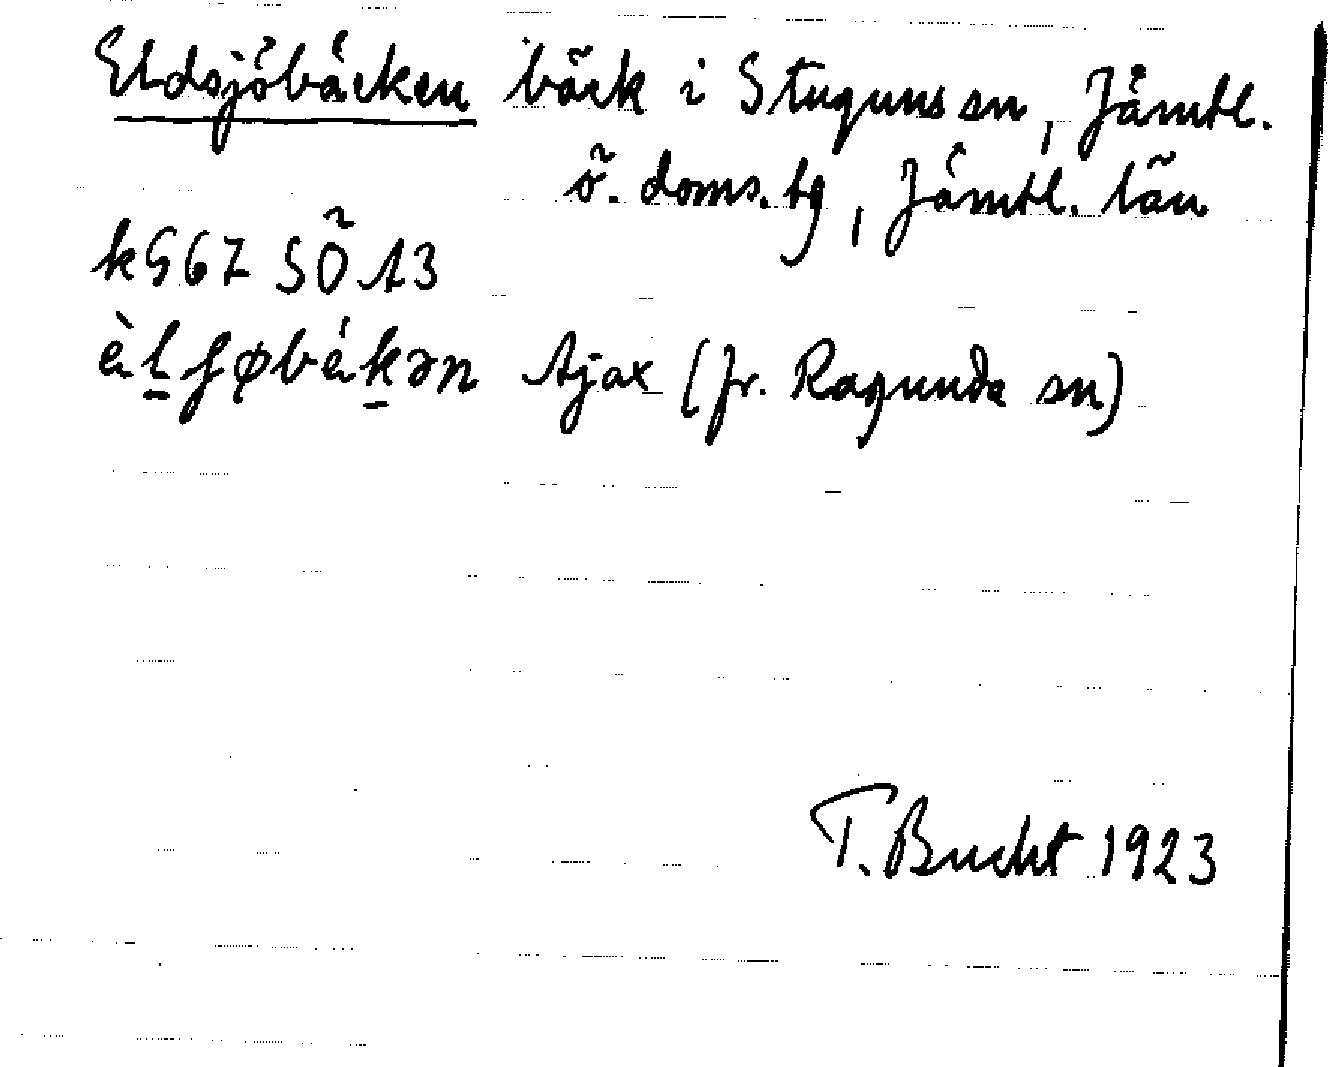 Eldsjöbäcken bäck i Stuguns sn, Jämtl.
ö. doms. tg, Jämtl. län
kG67 SÖ A3
èl̠ʃøbák̠ən Ajax (fr. Ragunda sn)
T. Bucht 1923